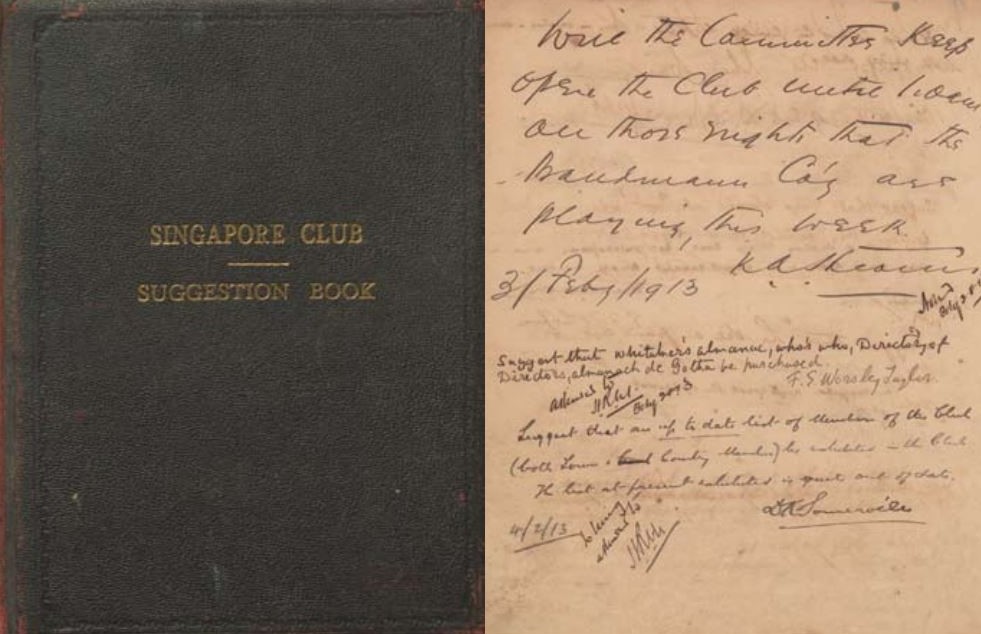 SINGAPORE CLUB
SUGGESTION BOOK
Will the Committee Keep
open the Club until
on those nights that the
Bandmann Co's are
playing, this week.
3/Feby/1913
Suggest that Whitaker's almanac, who's who, Directory of
Directors, almanach de Gotha be purchased.
F. S Worsley Taylor.
Suggest that an up to date list of Members of the Club
(both Town & Country Members) be exhibited in the Club
The list at present exhibited is quite out of date.
Somerville
4/2/13